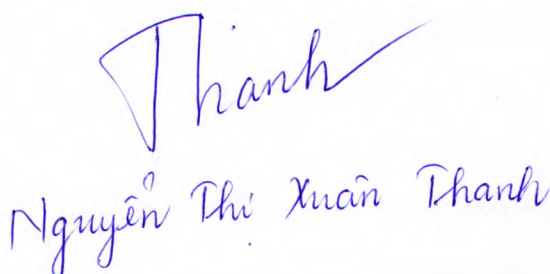 Thanh
Nguyễn Thị Xuân Thanh